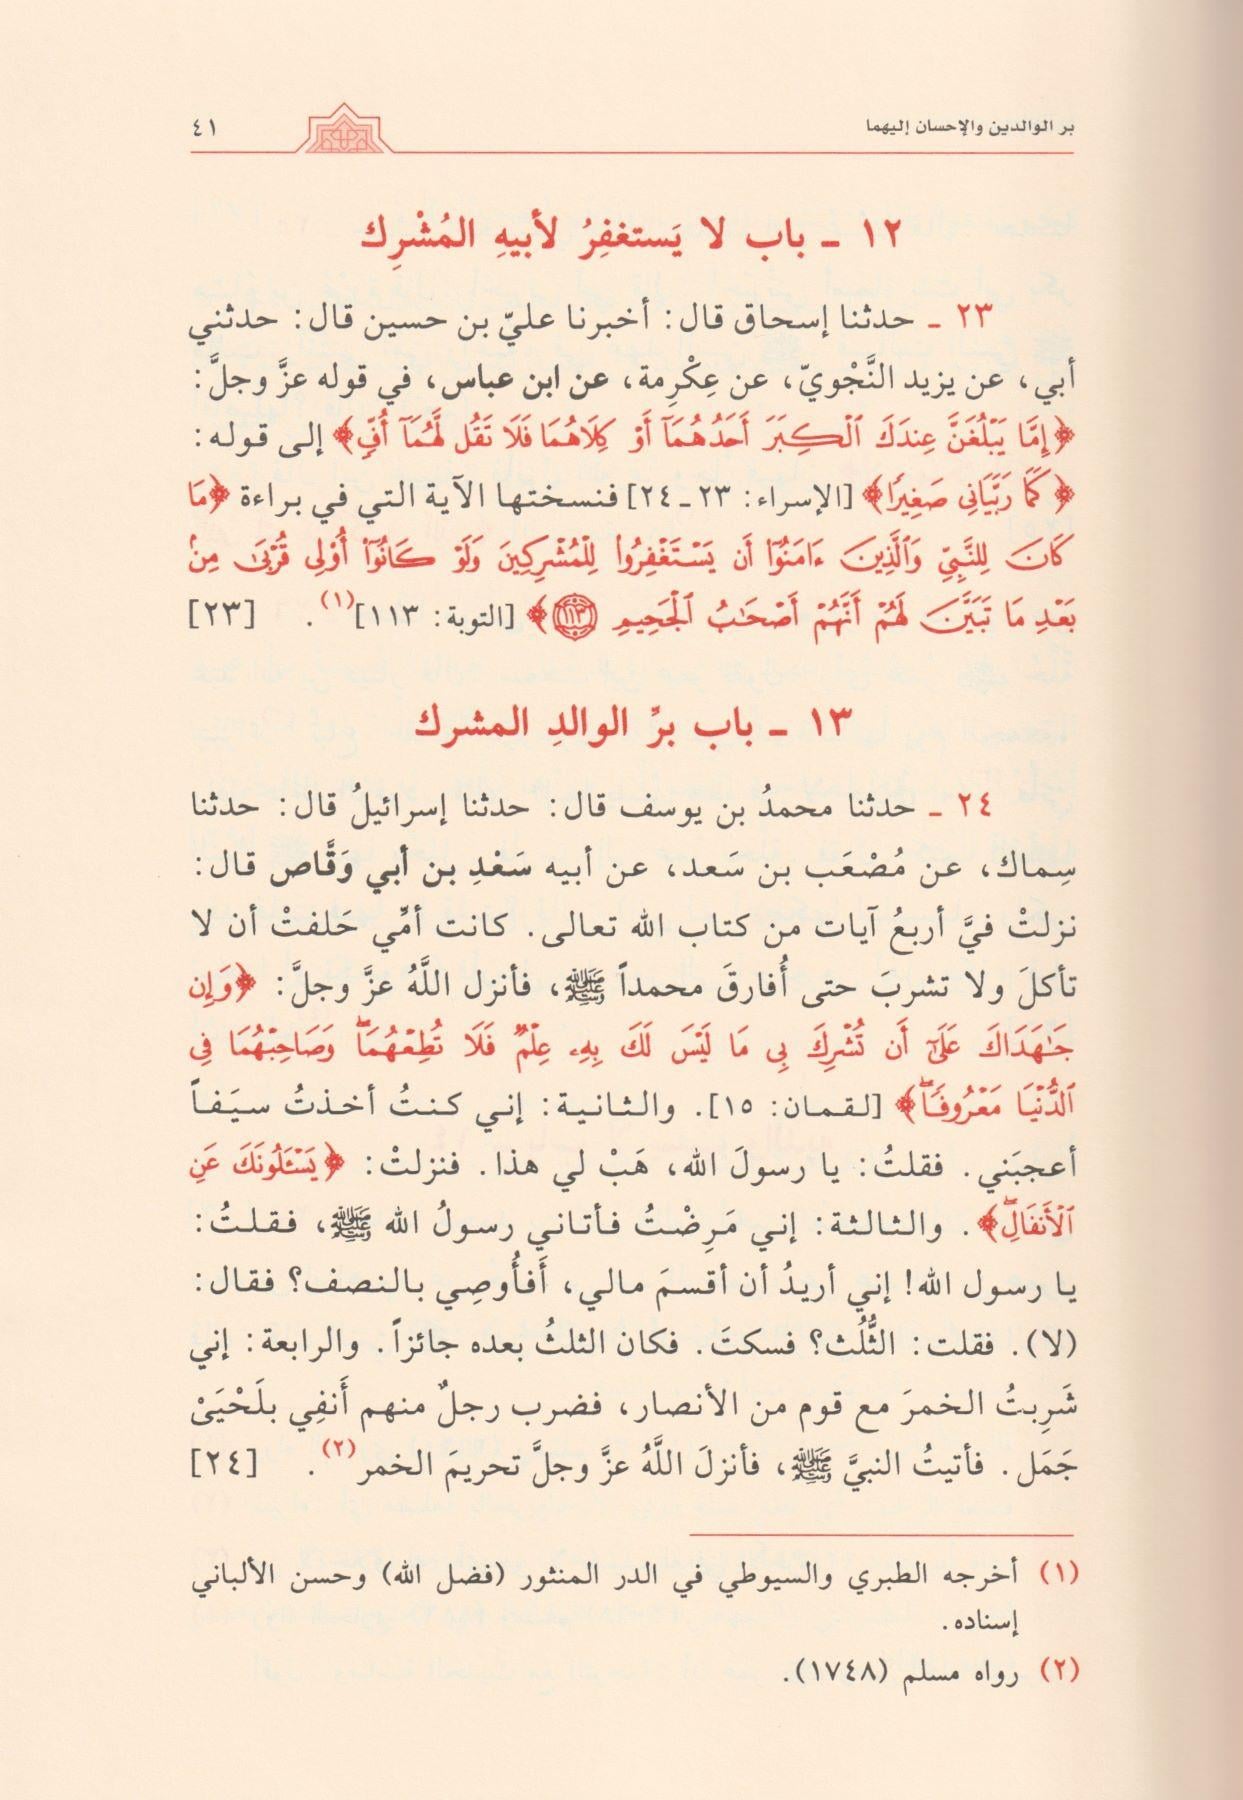 بر الوالدين والإحسان إليهما
٤١
١٢ ـ باب لا يَستغفِرُ لأبيهِ المُشْرِك
٢٣ ـ حدثنا إسحاق قال: أخبرنا عليّ بن حسين قال: حدثني
أبي، عن يزيد النَّجْويّ، عن عِكْرِمة، عن ابن عباس، في قوله عزَّ وجلَّ:
﴿إِمَّا يَبْلُغَنَّ عِندَكَ ٱلْكِبَرَ أَحَدُهُمَآ أَوْ كِلَاهُمَا فَلَا تَقُل لَّهُمَآ أُفٍّ﴾ إلى قوله:
﴿كَمَا رَبَّيَانِى صَغِيرًا﴾ [الإسراء: ٢٣ـ٢٤] فنسختها الآية التي في براءة ﴿مَا
كَانَ لِلنَّبِيِّ وَٱلَّذِينَ ءَامَنُوٓا۟ أَن يَسْتَغْفِرُوا۟ لِلْمُشْرِكِينَ وَلَوْ كَانُوٓا۟ أُو۟لِى قُرْبَىٰ مِنۢ
بَعْدِ مَا تَبَيَّنَ لَهُمْ أَنَّهُمْ أَصْحَٰبُ ٱلْجَحِيمِ ١١٣﴾ [التوبة: ١١٣](١). [٢٣]
١٣ ـ باب برِّ الوالدِ المشرك
٢٤ ـ حدثنا محمدُ بن يوسف قال: حدثنا إسرائيلُ قال: حدثنا
سِماك، عن مُصْعَب بن سَعد، عن أبيه سَعْدِ بن أبي وَقَّاص قال:
نزلتْ فيَّ أربعُ آيات من كتاب الله تعالى. كانت أمِّي حَلفتْ أن لا
تأكلَ ولا تشربَ حتى أُفارقَ محمداً ﷺ، فأنزل اللَّهُ عزَّ وجلَّ: ﴿وَإِن
جَٰهَدَاكَ عَلَىٰٓ أَن تُشْرِكَ بِى مَا لَيْسَ لَكَ بِهِۦ عِلْمٌ فَلَا تُطِعْهُمَا ۖ وَصَاحِبْهُمَا فِى
ٱلدُّنْيَا مَعْرُوفًا ۖ﴾ [لقمان: ١٥]. والثانية: إني كنتُ أخذتُ سيَفاً
أعجبَني. فقلتُ: يا رسولَ الله، هَبْ لي هذا. فنزلتْ: ﴿يَسْـَٔلُونَكَ عَنِ
ٱلْأَنفَالِ ۖ﴾. والثالثة: إني مَرِضْتُ فأتاني رسولُ الله ﷺ، فقلتُ:
يا رسول الله! إني أريدُ أن أقسمَ مالي، أَفأُوصِي بالنصف؟ فقال:
(لا). فقلت: الثُّلُث؟ فسكتَ. فكان الثلثُ بعده جائزاً. والرابعة: إني
شَرِبتُ الخمرَ مع قوم من الأنصار، فضرب رجلٌ منهم أَنفِي بلَحْيَيْ
جَمَل. فأتيتُ النبيَّ ﷺ، فأنزلَ اللَّهُ عزَّ وجلَّ تحريمَ الخمر(٢). [٢٤]
(١) أخرجه الطبري والسيوطي في الدر المنثور (فضل الله) وحسن الألباني
إسناده.
(٢) رواه مسلم (١٧٤٨).